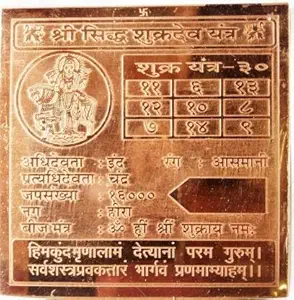 श्री सिद्ध शुक्रदेव यंत्र
शुक्र यंत्र-३०
११ ६ १३
१२ १० ८
७ १४ ९
अधिदेवता : इंद्र रंग : आसमानी
प्रत्यधिदेवता : चंद्र
जपसंख्या : १६०००
नग : हीरा
बीज मंत्र : ॐ ह्रीं श्रीं शुक्राय नमः
हिमकुंदमृणालामं देत्यानां परम गुरुम्।
सर्वशस्त्रप्रवक्तार भार्गवं प्रणमाम्यहम्।।